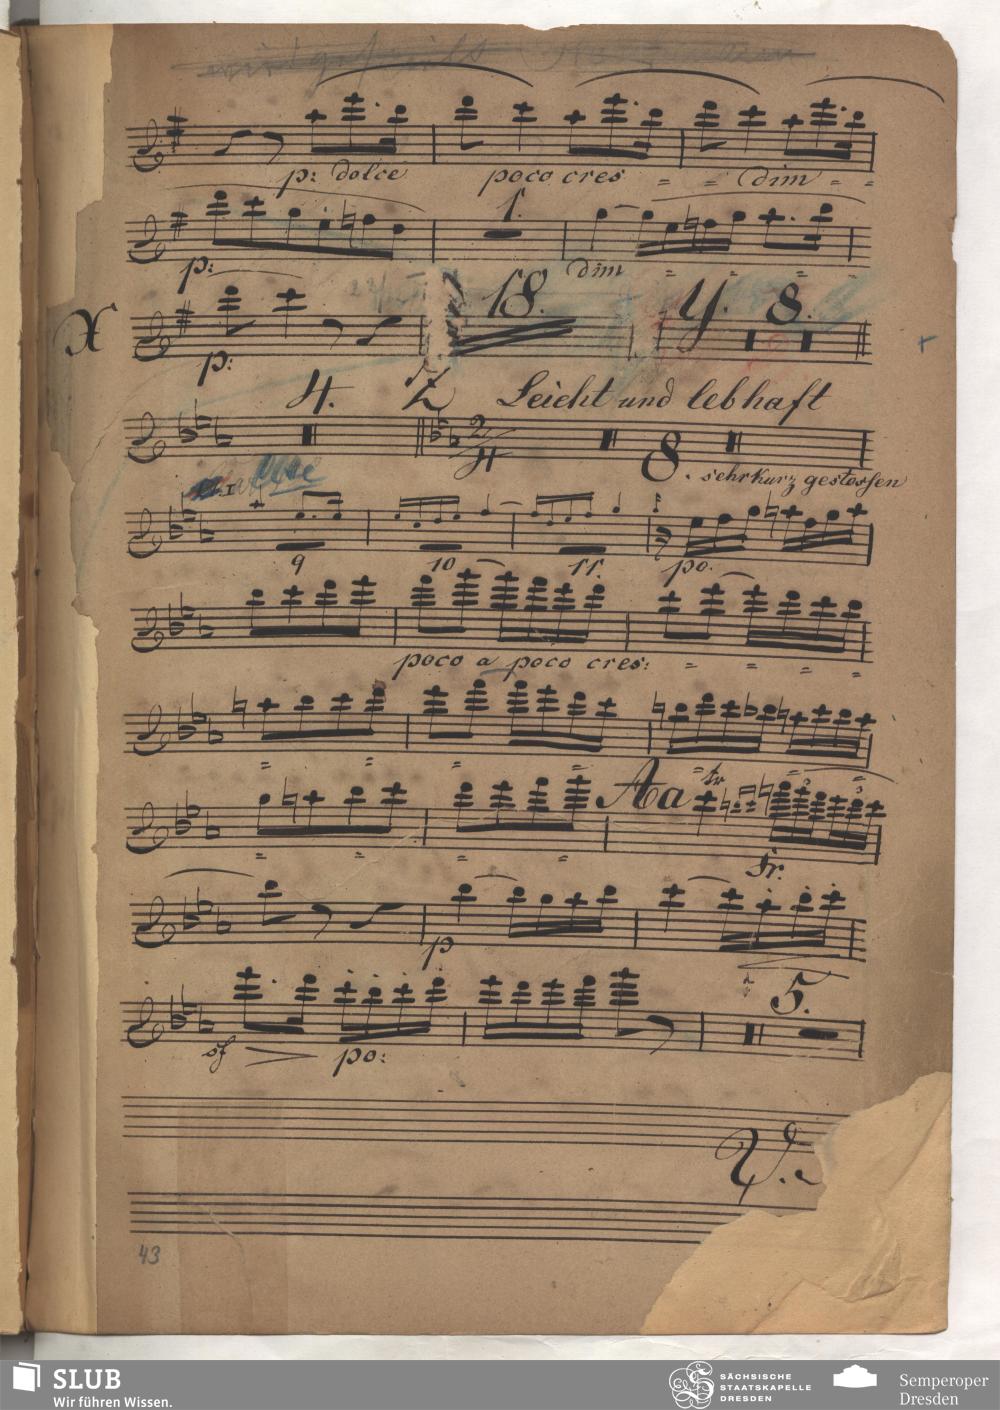 p: dolce poco cres = = dim = =
1.
p: dim = = = =
18. Y. 8.
X
p:
4. Z Leicht und lebhaft
2/4 8. sehr kurz gestossen
9 10 11. po.
poco a poco cres: = = = =
= = =
Aa = tr = =
3 3
= = = =
tr.
p
5.
sf po:
V.
43
SLUB
Wir führen Wissen.
SÄCHSISCHE
STAATSKAPELLE
DRESDEN
Semperoper
Dresden